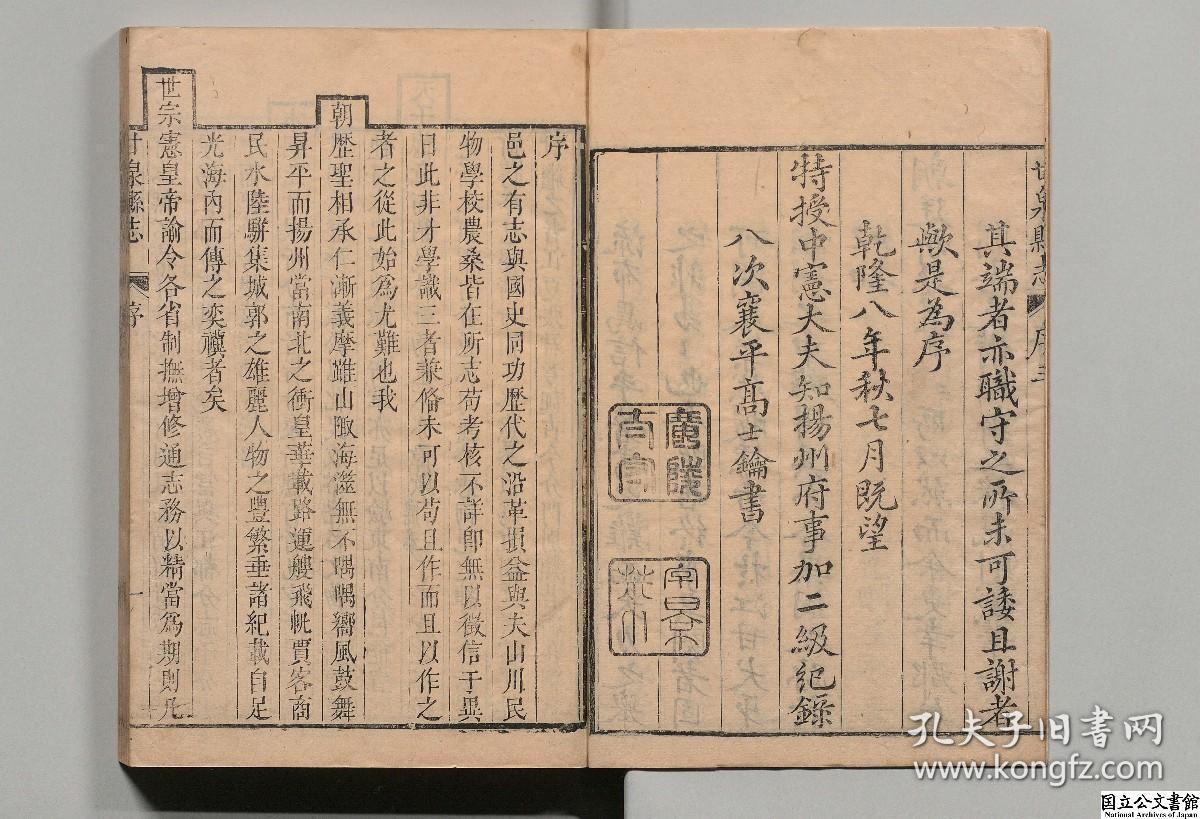 甘泉縣志
序三
其端者亦職守之所未可諉且謝者
歟是為序
乾隆八年秋七月既望
特授中憲大夫知揚州府事加二級紀錄
八次襄平高士鑰書
序
邑之有志與國史同功歷代之沿革損益與夫山川民
物學校農桑皆在所志苟考核不詳卽無以徵信于異
日此非才學識三者兼備未可以苟且作而且以作之
者之從此始爲尤難也我
朝歷聖相承仁漸義摩雖山陬海澨無不喁喁嚮風鼓舞
昇平而揚州當南北之衝皇華載路運艘飛帆賈客商
民水陸駢集城郭之雄麗人物之豐繁垂諸紀載自足
光海內而傳之奕禩者矣
世宗憲皇帝諭令各省制撫增修通志務以精當爲期則凡
甘泉縣志
序
一
孔夫子旧书网
www.kongfz.com
国立公文書館
National Archives of Japan